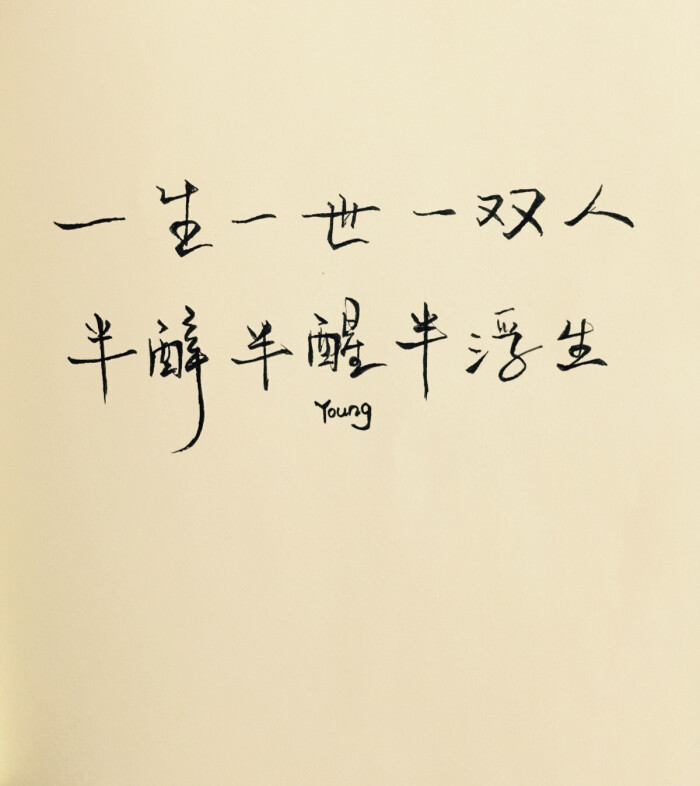 一生一世一双人
半醉半醒半浮生
Young